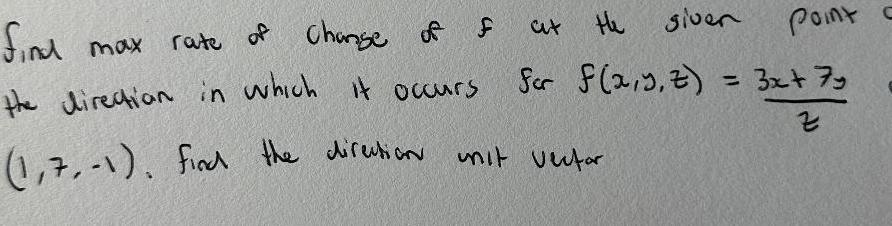 find max rate of change of f at the given point
the direction in which it occurs for f(x,y,z) = \frac{3x+7y}{z}
(1,7,-1). find the direction unit vector